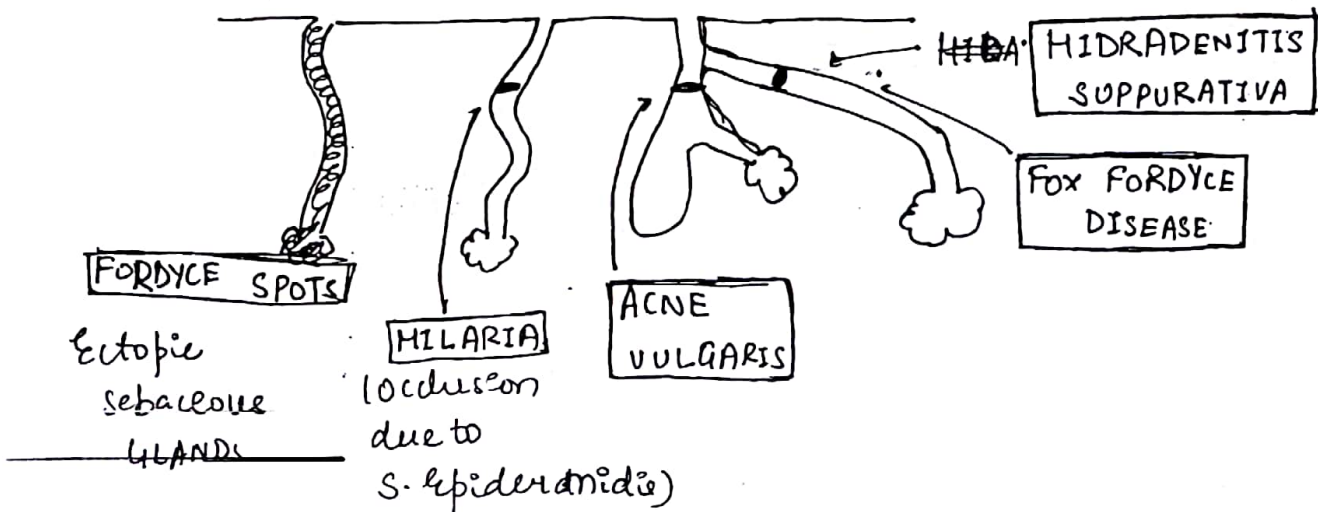 HIDA HIDRADENITIS
SUPPURATIVA
FOX FORDYCE
DISEASE
FORDYCE SPOTS
Ectopic
sebaceous
GLANDS
MILARIA
(occlusion
due to
S. Epidermidis)
ACNE
VULGARIS